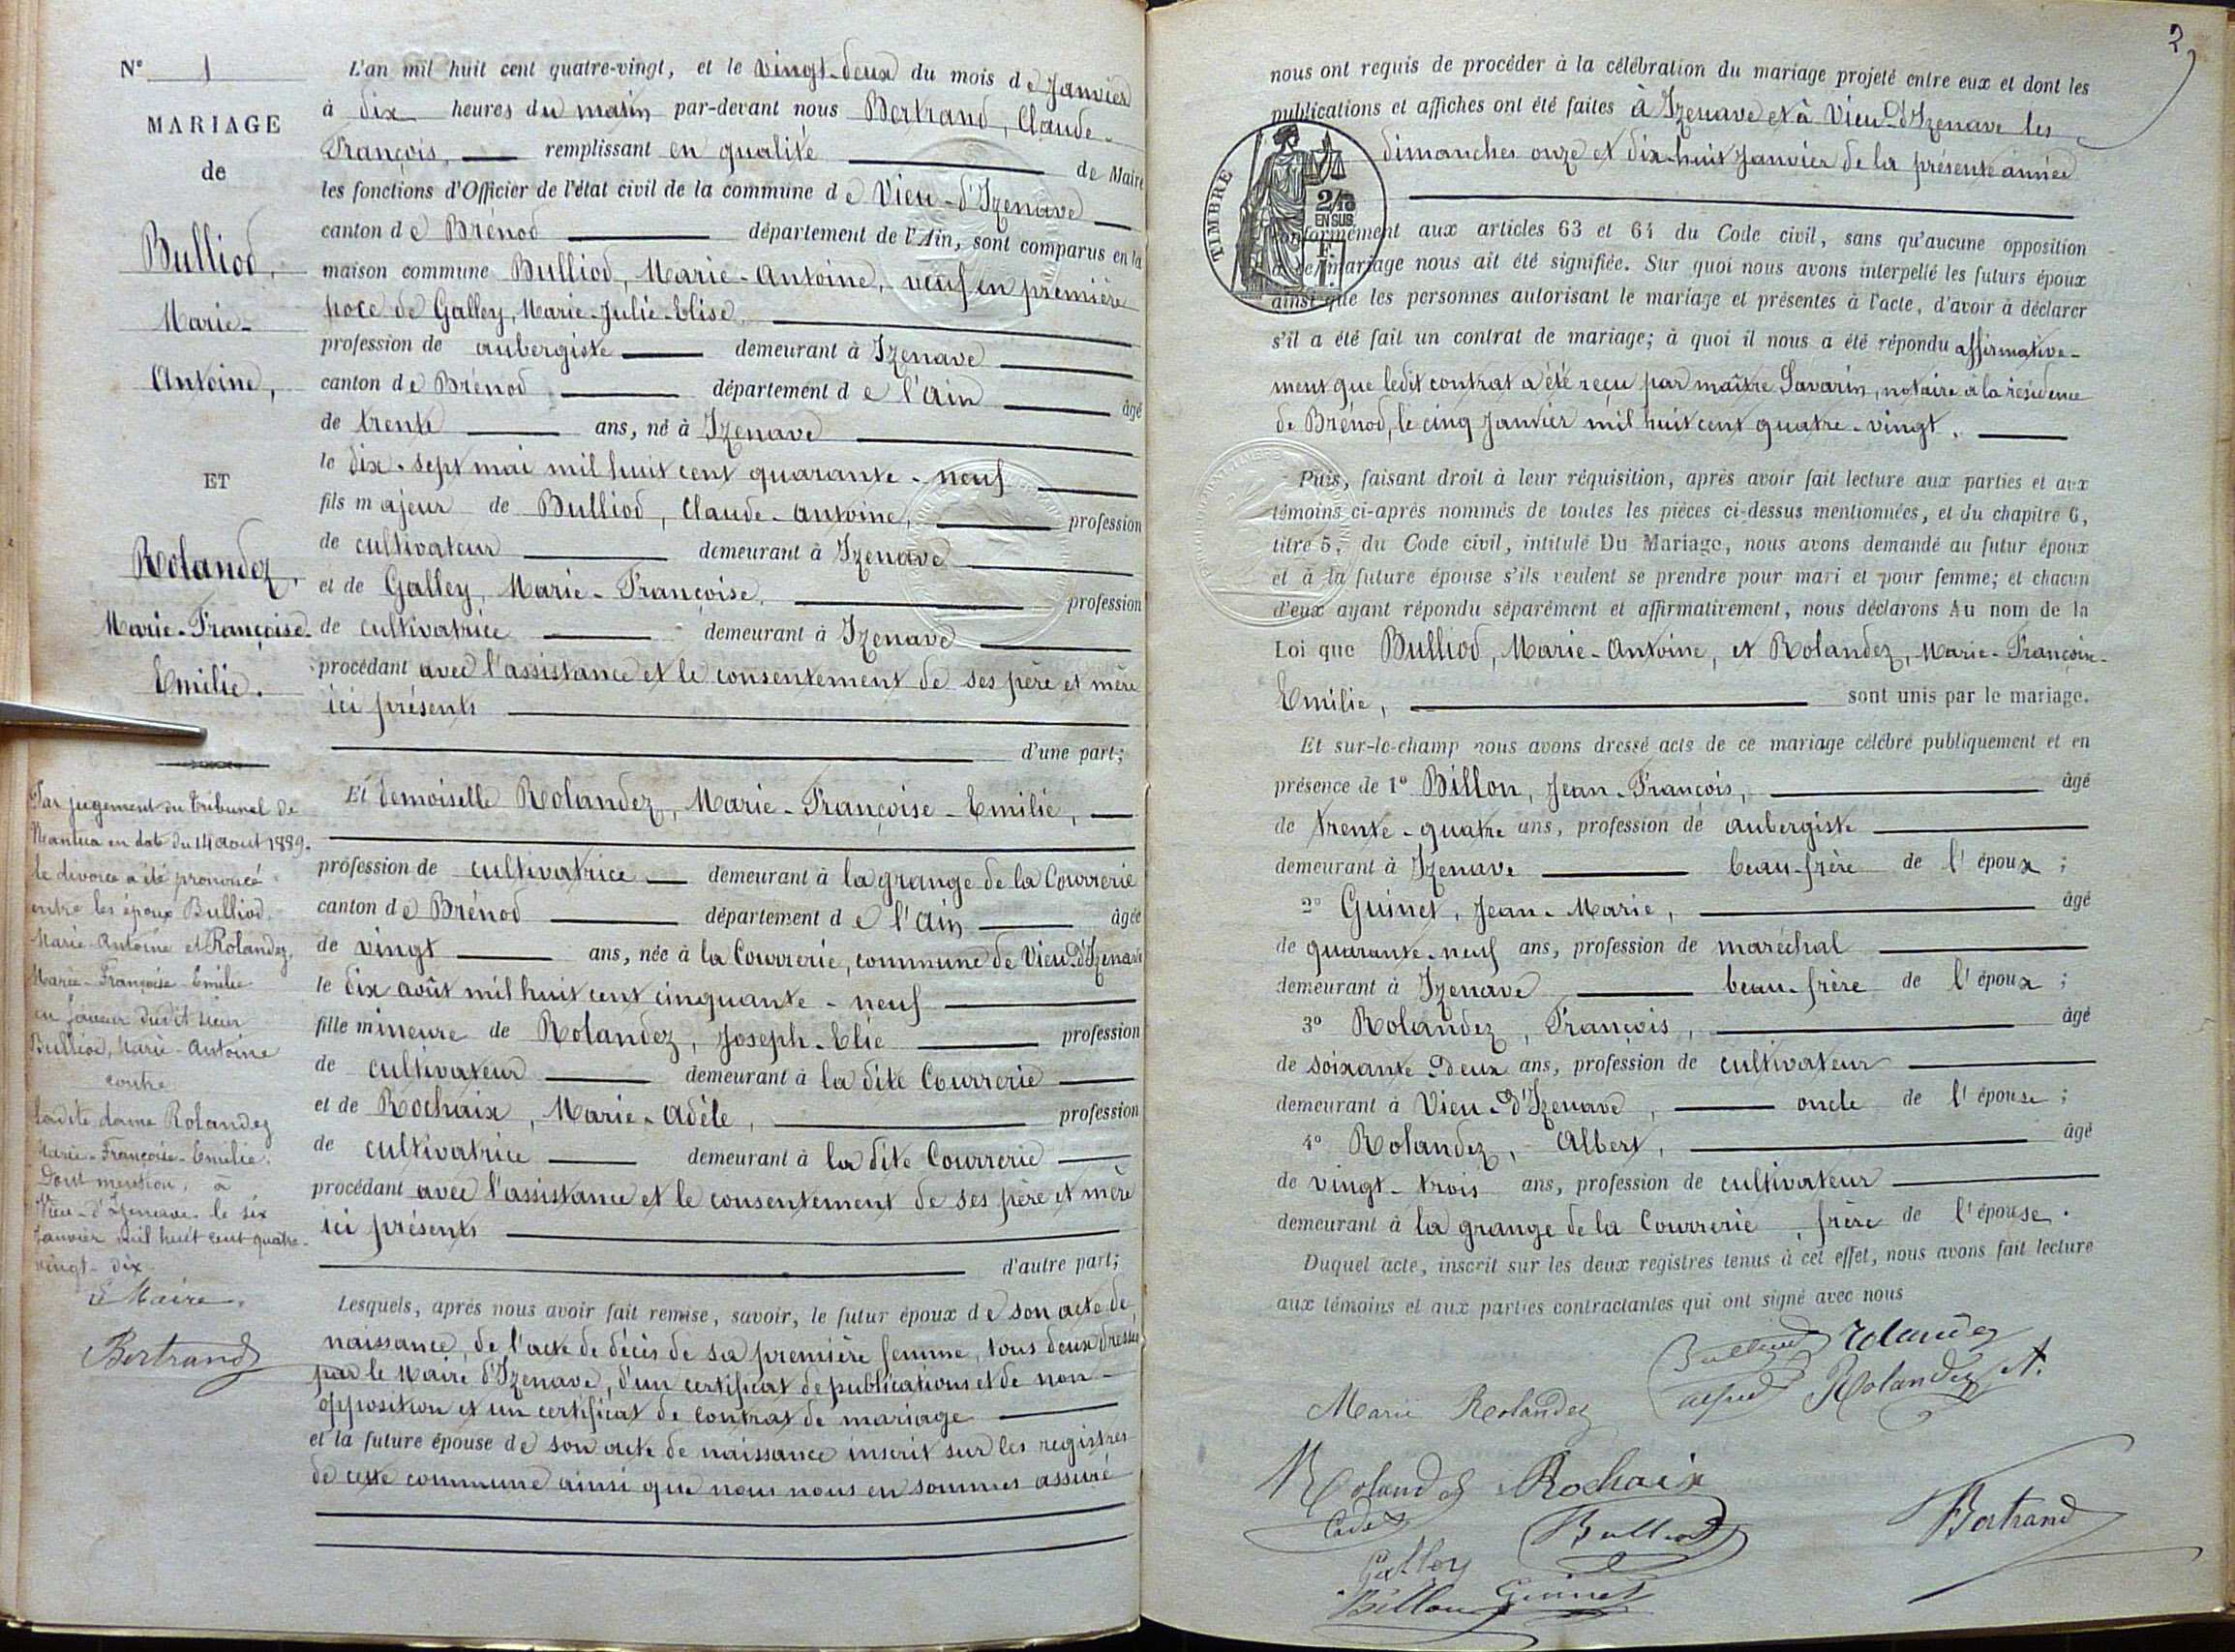 N° 1
MARIAGE
de
Bulliod,
Marie-
Antoine,
ET
Rolandez,
Marie-Françoise-
Emilie.
Par jugement du tribunal de
Nantua en date du 14 aout 1889.
le divorce a été prononcé
entre les époux Bulliod,
Marie-Antoine et Rolandez,
Marie-Françoise-Emilie
en faveur dudit sieur
Bulliod, Marie-Antoine
contre
ladite dame Rolandez
Marie-Françoise-Emilie.
Dont mention, à
Vieu-d'Izenave le six
Janvier mil huit cent quatre-
vingt-dix
Le Maire,
Bertrand
L'an mil huit cent quatre-vingt, et le vingt-deux du mois de Janvier
à dix heures du matin par-devant nous Bertrand, Claude-
François, remplissant en qualité de Maire
les fonctions d'Officier de l'état civil de la commune de Vieu-d'Izenave
canton de Brénod département de l'Ain, sont comparus en la
maison commune Bulliod, Marie-Antoine, veuf en première
noce de Galley, Marie-Julie-Elise,
profession de aubergiste demeurant à Izenave
canton de Brénod département de l'Ain âgé
de trente ans, né à Izenave
le dix-sept mai mil huit cent quarante-neuf
fils majeur de Bulliod, Claude-Antoine, profession
de cultivateur demeurant à Izenave
et de Galley, Marie-Françoise, profession
de cultivatrice demeurant à Izenave
procédant avec l'assistance et le consentement de ses père et mère
ici présents
d'une part;
Et demoiselle Rolandez, Marie-Françoise-Emilie,
profession de cultivatrice demeurant à la grange de la Courrerie
canton de Brénod département de l'Ain âgée
de vingt ans, née à la Courrerie, commune de Vieu-d'Izenave
le dix août mil huit cent cinquante-neuf
fille mineure de Rolandez, Joseph-Elie profession
de cultivateur demeurant à la dite Courrerie
et de Rochaix, Marie-Adèle, profession
de cultivatrice demeurant à la dite Courrerie
procédant avec l'assistance et le consentement de ses père et mère
ici présents
d'autre part;
Lesquels, après nous avoir fait remise, savoir, le futur époux de son acte de
naissance, de l'acte de décès de sa première femme, tous deux dressés
par le Maire d'Izenave, d'un certificat de publications et de non-
opposition et un certificat de contrat de mariage
et la future épouse de son acte de naissance inscrit sur les registres
de cette commune ainsi que nous nous en sommes assuré
2
nous ont requis de procéder à la célébration du mariage projeté entre eux et dont les
publications et affiches ont été faites à Izenave et à Vieu-d'Izenave les
dimanches onze et dix-huit Janvier de la présente année
TIMBRE
2/10
EN SUS
conformément aux articles 63 et 64 du Code civil, sans qu'aucune opposition
à ce mariage nous ait été signifiée. Sur quoi nous avons interpellé les futurs époux
ainsi que les personnes autorisant le mariage et présentes à l'acte, d'avoir à déclarer
s'il a été fait un contrat de mariage; à quoi il nous a été répondu affirmative-
ment que ledit contrat a été reçu par maître Savarin, notaire à la résidence
de Brénod, le cinq Janvier mil huit cent quatre-vingt.
Puis, faisant droit à leur réquisition, après avoir fait lecture aux parties et aux
témoins ci-après nommés de toutes les pièces ci-dessus mentionnées, et du chapitre 6,
titre 5, du Code civil, intitulé Du Mariage, nous avons demandé au futur époux
et à la future épouse s'ils veulent se prendre pour mari et pour femme; et chacun
d'eux ayant répondu séparément et affirmativement, nous déclarons Au nom de la
Loi que Bulliod, Marie-Antoine, et Rolandez, Marie-Françoise-
Emilie, sont unis par le mariage.
Et sur-le-champ nous avons dressé acte de ce mariage célébré publiquement et en
présence de 1° Billon, Jean-François, âgé
de trente-quatre ans, profession de aubergiste
demeurant à Izenave beau-frère de l'époux;
2° Guinet, Jean-Marie, âgé
de quarante-neuf ans, profession de maréchal
demeurant à Izenave beau-frère de l'époux;
3° Rolandez, François, âgé
de soixante-deux ans, profession de cultivateur
demeurant à Vieu-d'Izenave, oncle de l'épouse;
4° Rolandez, Albert, âgé
de vingt-trois ans, profession de cultivateur
demeurant à la grange de la Courrerie, frère de l'épouse.
Duquel acte, inscrit sur les deux registres tenus à cet effet, nous avons fait lecture
aux témoins et aux parties contractantes qui ont signé avec nous
Bulliod Rolandez
Marie Rolandez alfred Rolandez A.
Rolandez Rochaix
Cadet Bulliod Bertrand
Galley
Billon Guinet